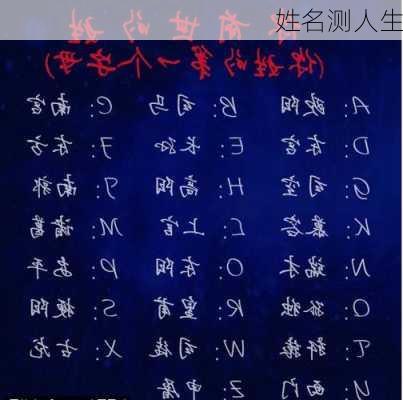 姓名测人生
(你姓的第1个字母)
A: 欧阳 B: 司马 C: 南宫
D: 东宫 E: F: 东方
G: 司空 H: 高阳 J: 南郭
K: 慕容 L: 上官 M: 诸葛
N: 端木 O: 东阳 P: 安平
Q: R: 皇甫 S:
T: 轩辕 W: X: 古龙
Y: 西门 Z: 申屠